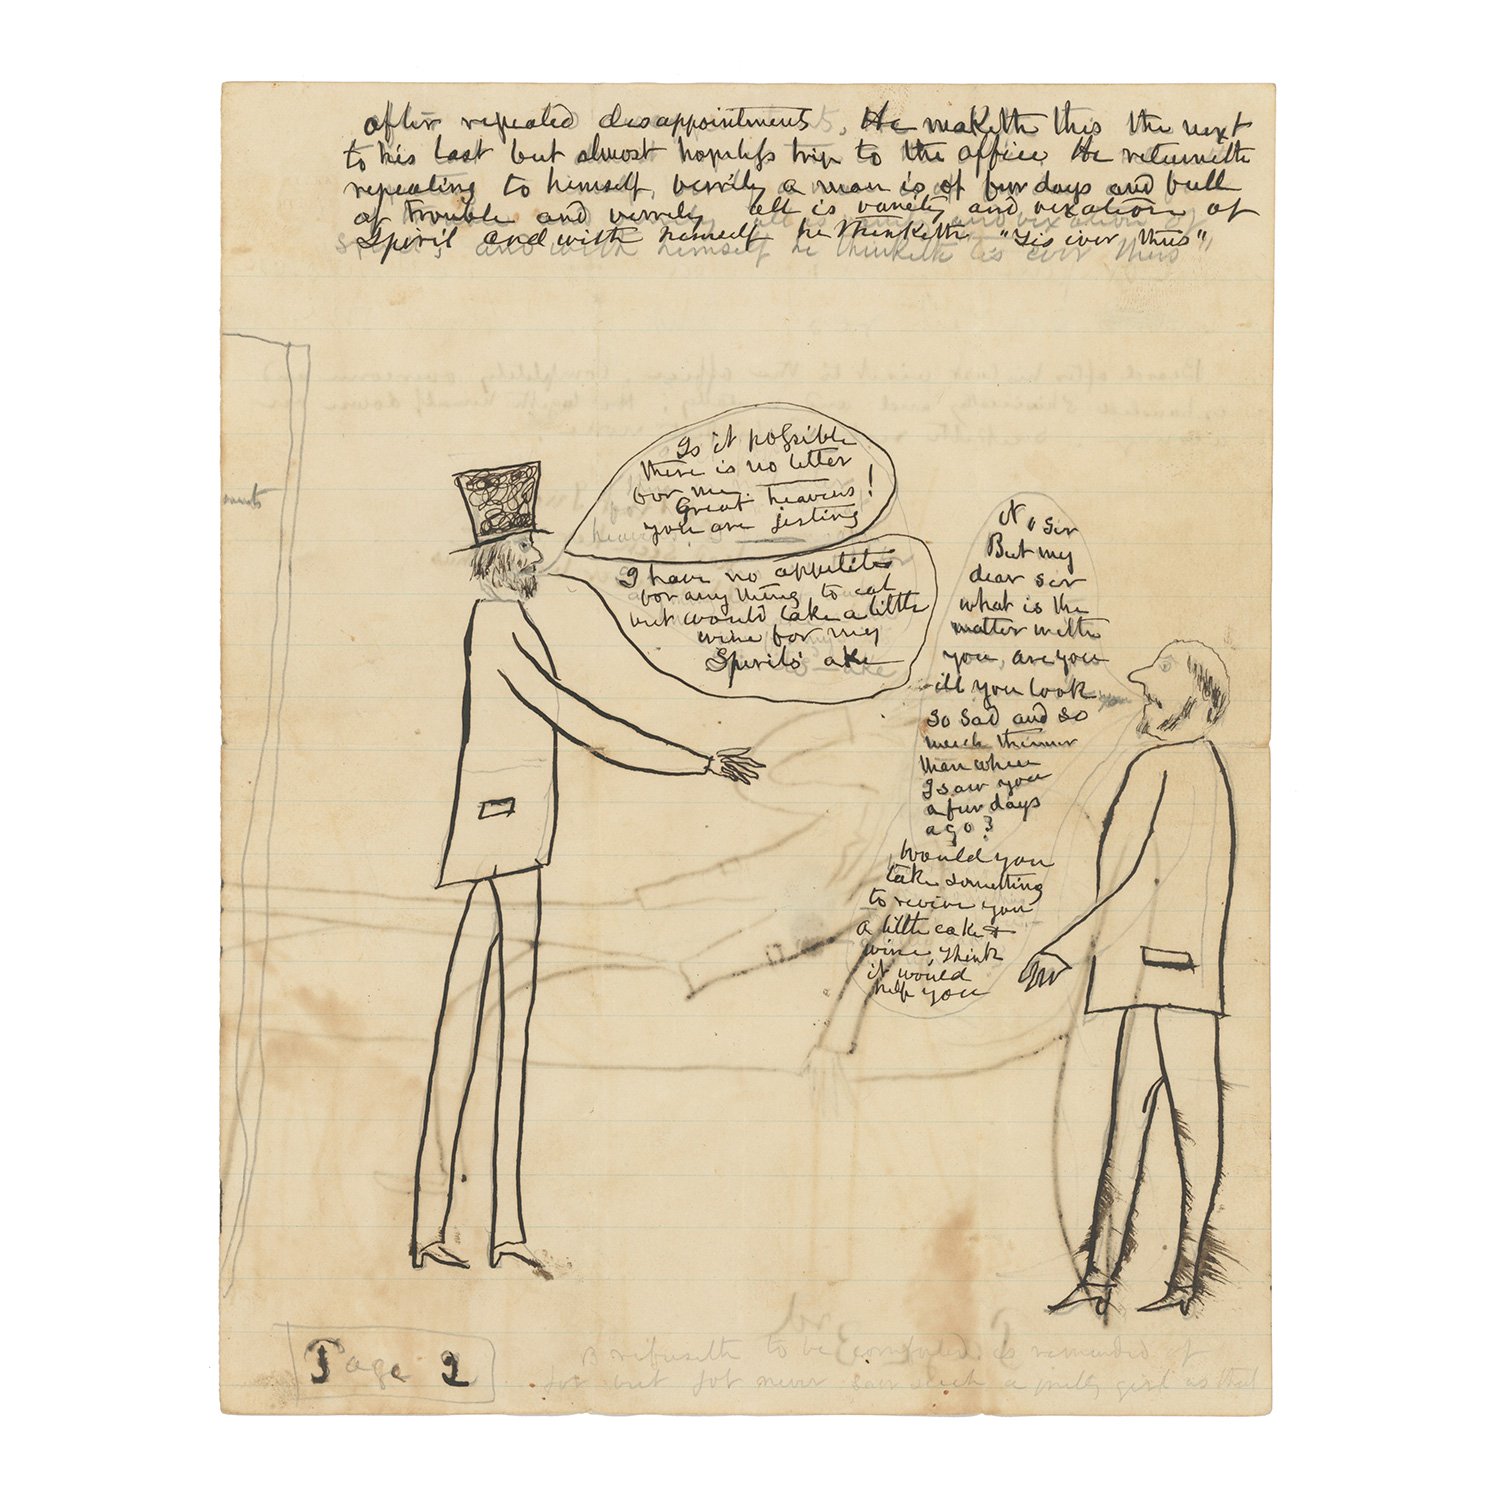 after repeated disappointments, He maketh this the next
to his last but almost hopeless trip to the office He returneth
repeating to himself, verrily a man is of fur days and full
of trouble and verrely all is vanety and vexation of
Spirit and with himself he thinketh "Tis ever thus"
Is it possible
there is no letter
for me. Great heavens!
you are jesting
I have no appetite
for any thing to eat
but would take a little
wine for my
Spirits' ake
No Sir
But my
dear sir
what is the
matter with
you, are you
ill you look
so sad and so
much thinner
than when
I saw you
a fur days
ago?
Would you
take something
to revive you
a little cake &
wine, I think
it would
help you
Page 2
B refuseth to be comforted is reminded of
Job but Job never saw such a pretty girl as that